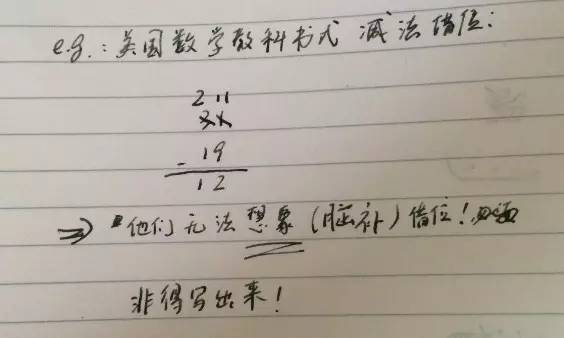 e.g.: 美国数学教科书式 减法借位:
2 11
31
- 19
12
⇒ "他们无法想象(脑补)借位!
非得写出来!